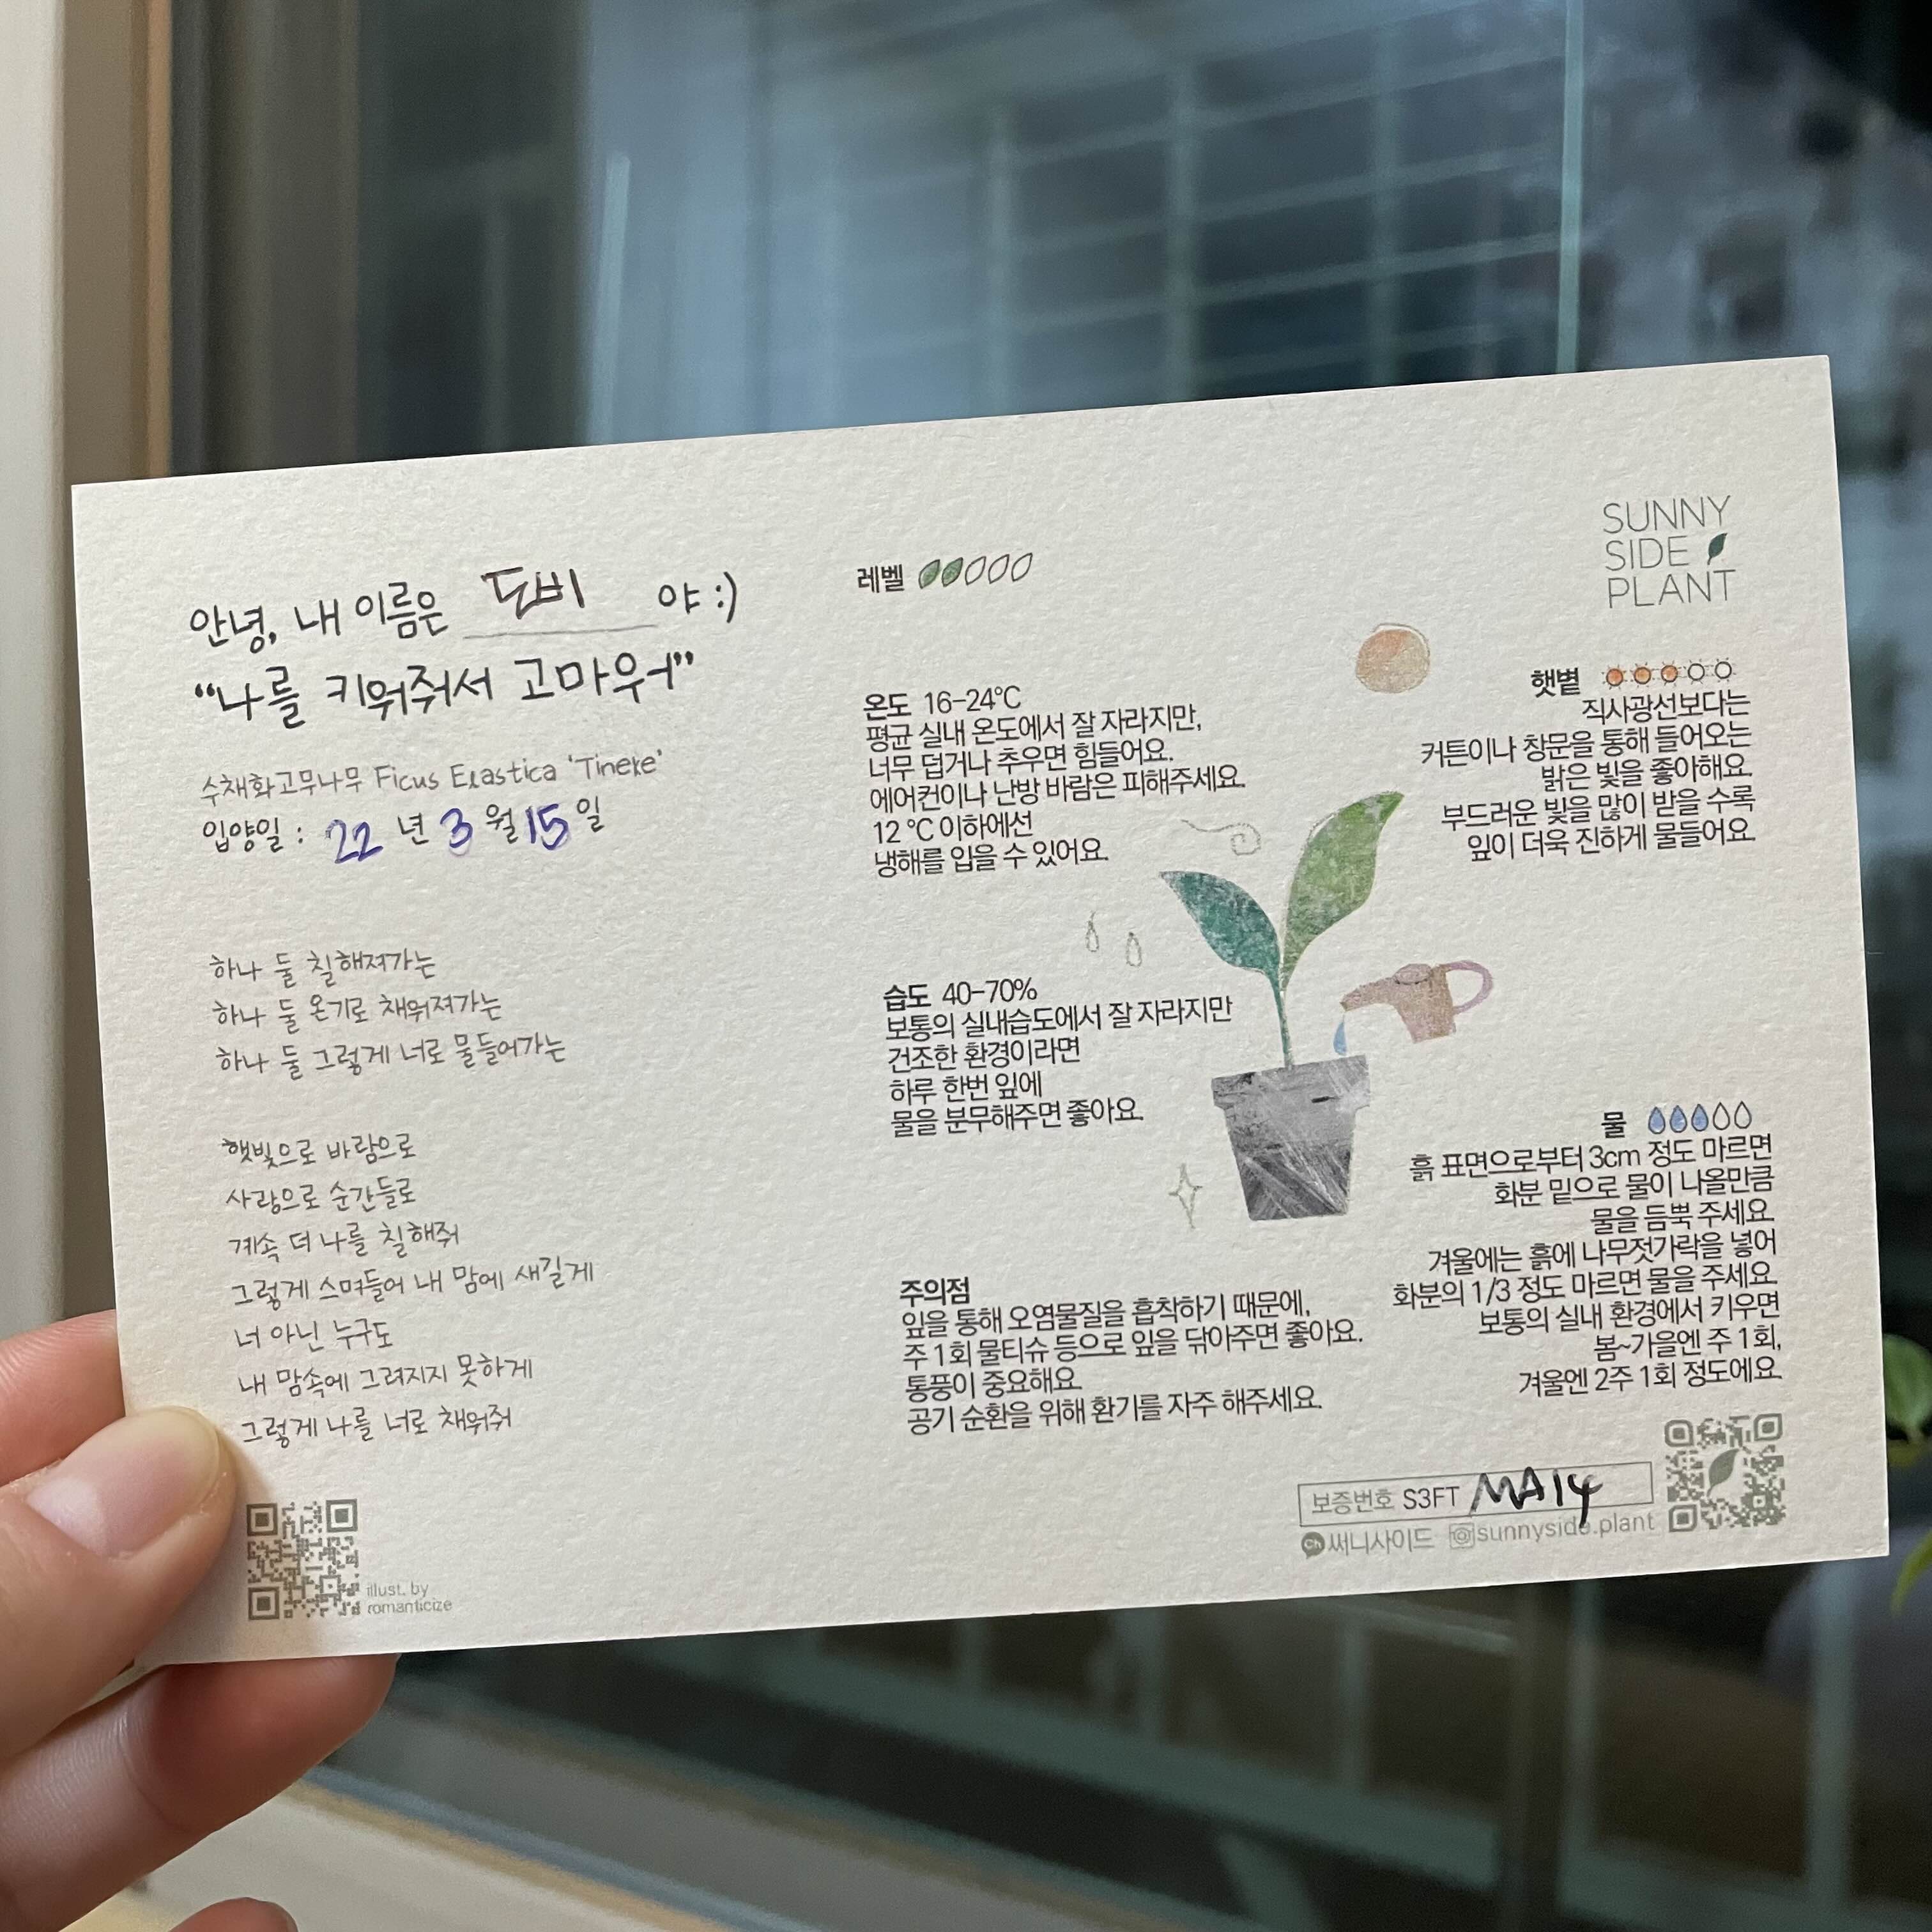 안녕, 내 이름은 도비 야 :)
“나를 키워줘서 고마워”
수채화고무나무 Ficus Elastica ‘Tineke’
입양일 : 22 년 3 월 15 일
하나 둘 칠해져가는
하나 둘 온기로 채워져가는
하나 둘 그렇게 너로 물들어가는
햇빛으로 바람으로
사랑으로 순간들로
계속 더 나를 칠해줘
그렇게 스며들어 내 맘에 새길게
너 아닌 누구도
내 맘속에 그려지지 못하게
그렇게 나를 너로 채워줘
illust. by
romanticize
레벨
온도 16-24℃
평균 실내 온도에서 잘 자라지만,
너무 덥거나 추우면 힘들어요.
에어컨이나 난방 바람은 피해주세요.
12 ℃ 이하에선
냉해를 입을 수 있어요.
습도 40-70%
보통의 실내습도에서 잘 자라지만
건조한 환경이라면
하루 한번 잎에
물을 분무해주면 좋아요.
주의점
잎을 통해 오염물질을 흡착하기 때문에,
주 1회 물티슈 등으로 잎을 닦아주면 좋아요.
통풍이 중요해요.
공기 순환을 위해 환기를 자주 해주세요.
SUNNY
SIDE
PLANT
햇볕
직사광선보다는
커튼이나 창문을 통해 들어오는
밝은 빛을 좋아해요.
부드러운 빛을 많이 받을 수록
잎이 더욱 진하게 물들어요.
물
흙 표면으로부터 3cm 정도 마르면
화분 밑으로 물이 나올만큼
물을 듬뿍 주세요.
겨울에는 흙에 나무젓가락을 넣어
화분의 1/3 정도 마르면 물을 주세요.
보통의 실내 환경에서 키우면
봄~가을엔 주 1회,
겨울엔 2주 1회 정도에요.
보증번호 S3FT MA14
Ch 써니사이드 sunnyside.plant